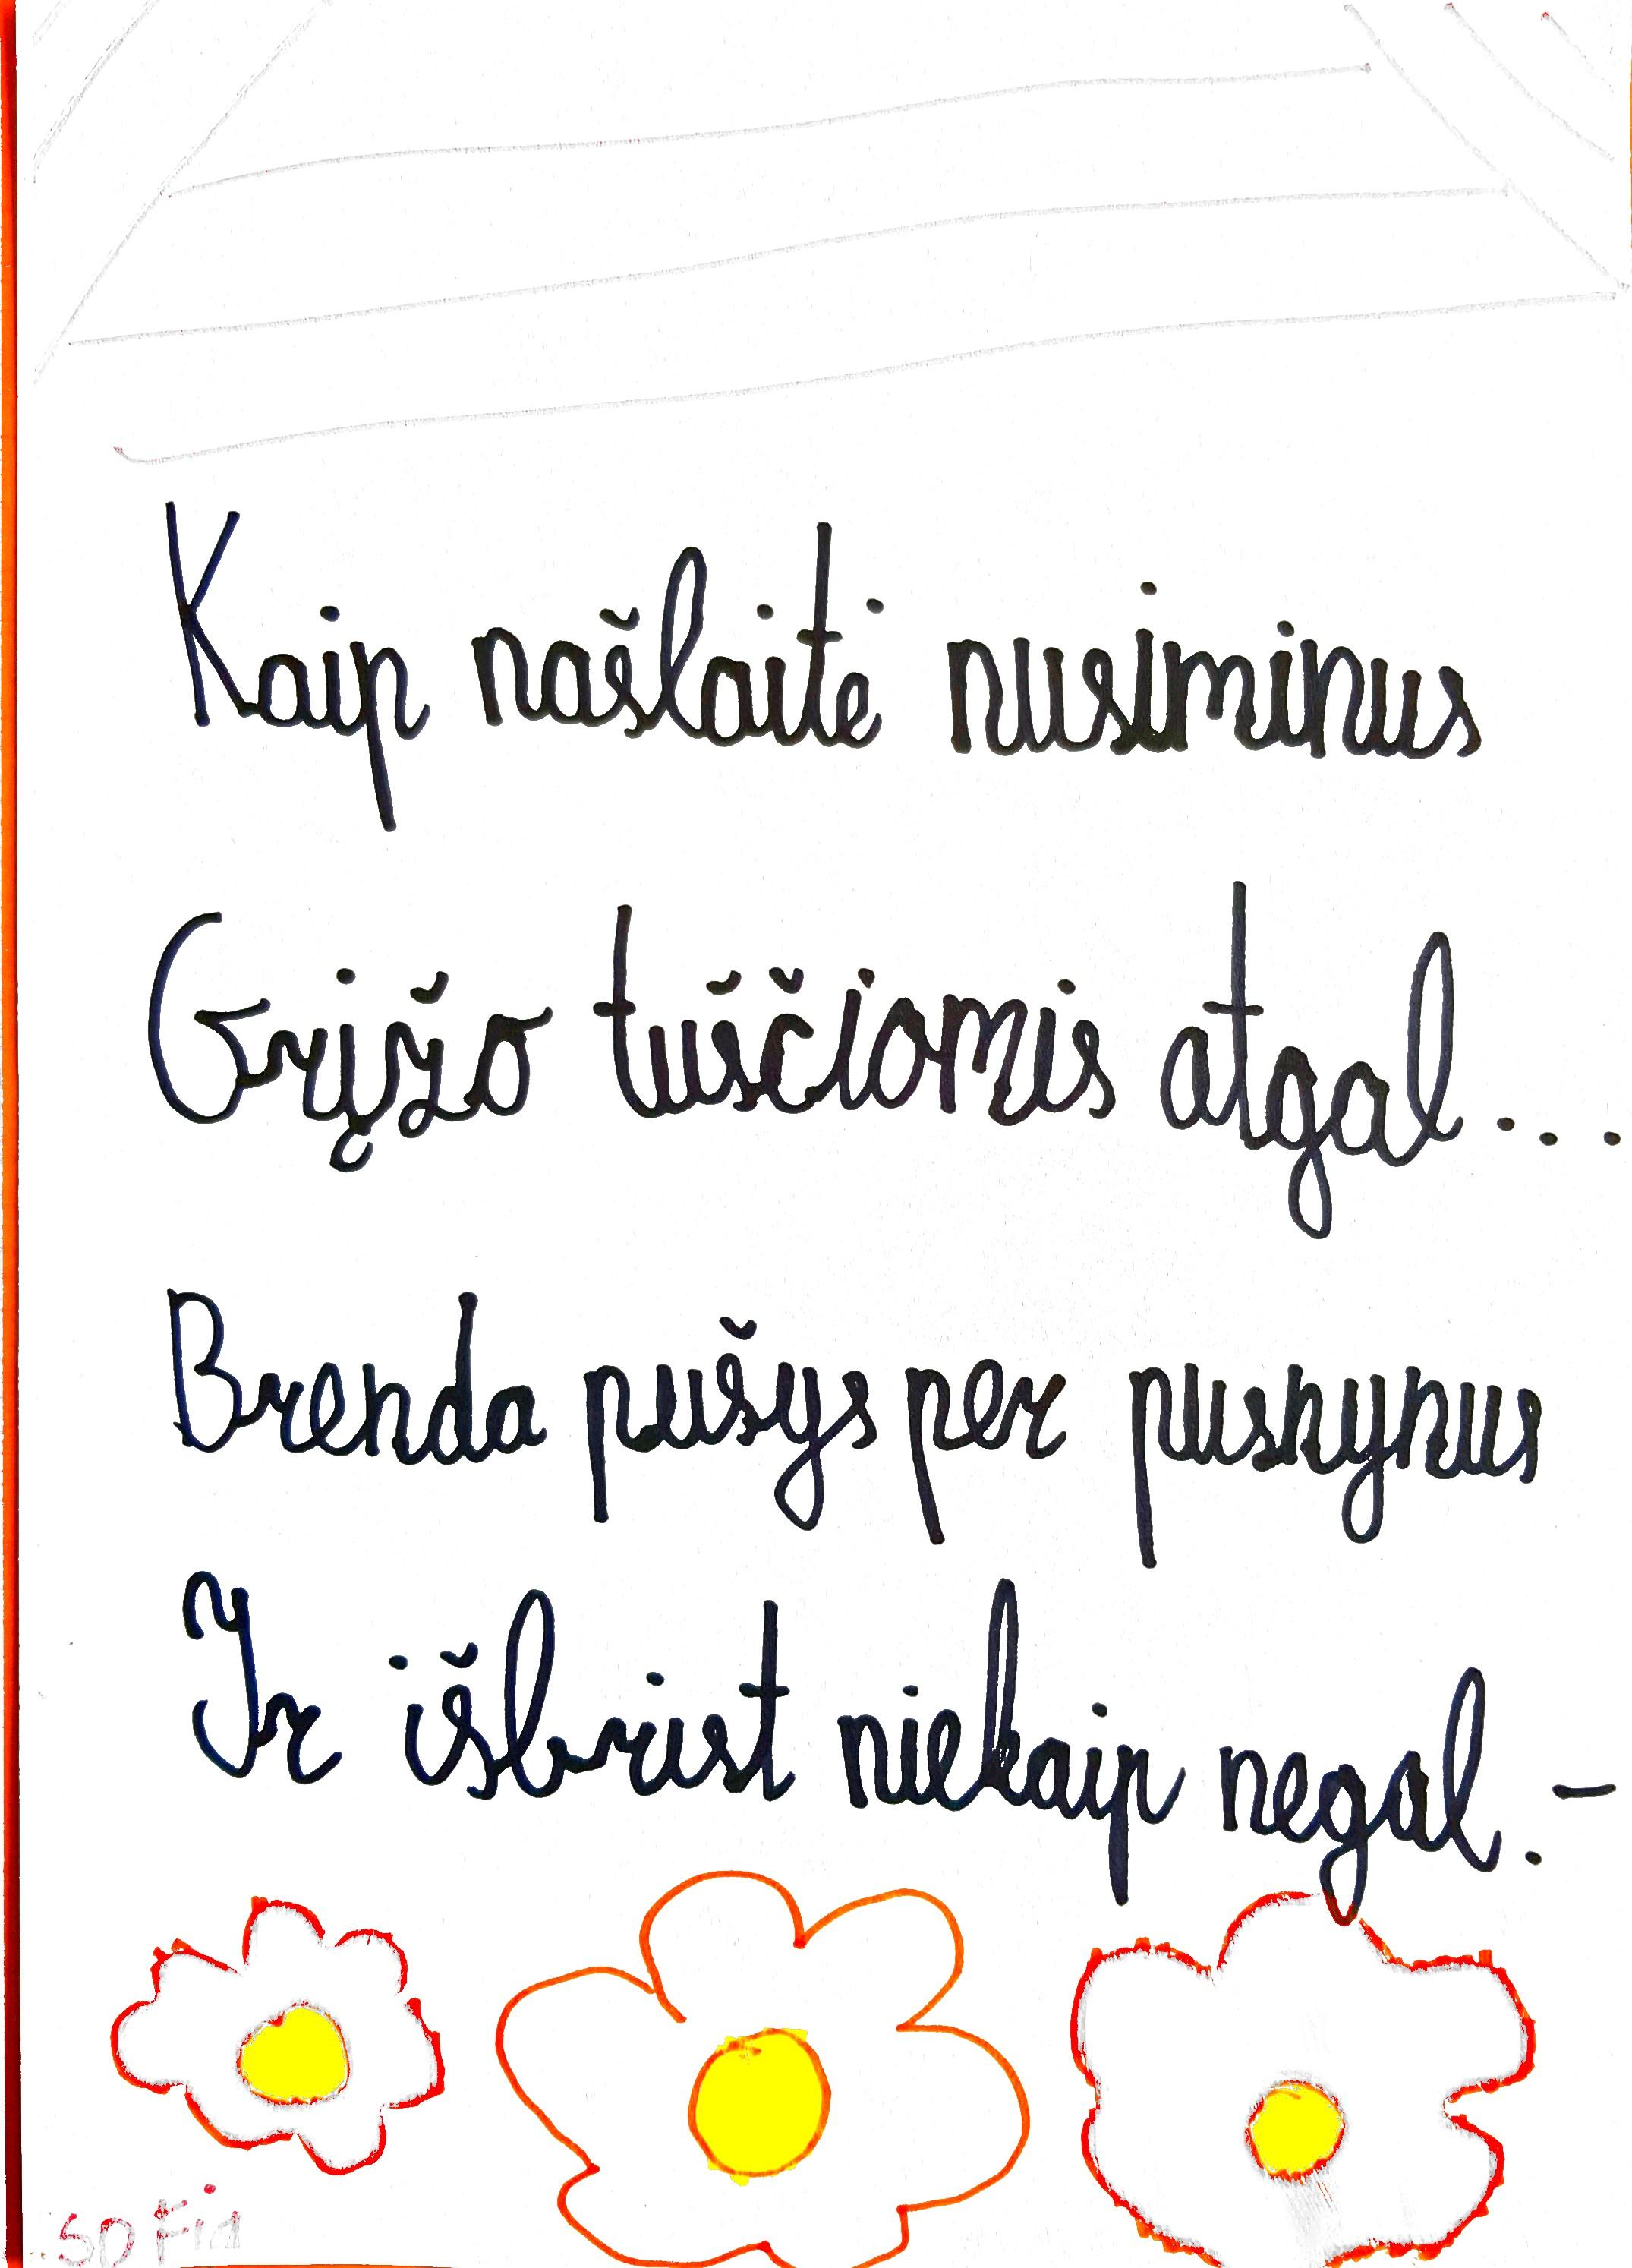 Kaip našlaitė nusiminus
Grįžo tuščiomis atgal...
Brenda pušys per pusnynus
Ir išbrist niekaip negal. -
SOFiA